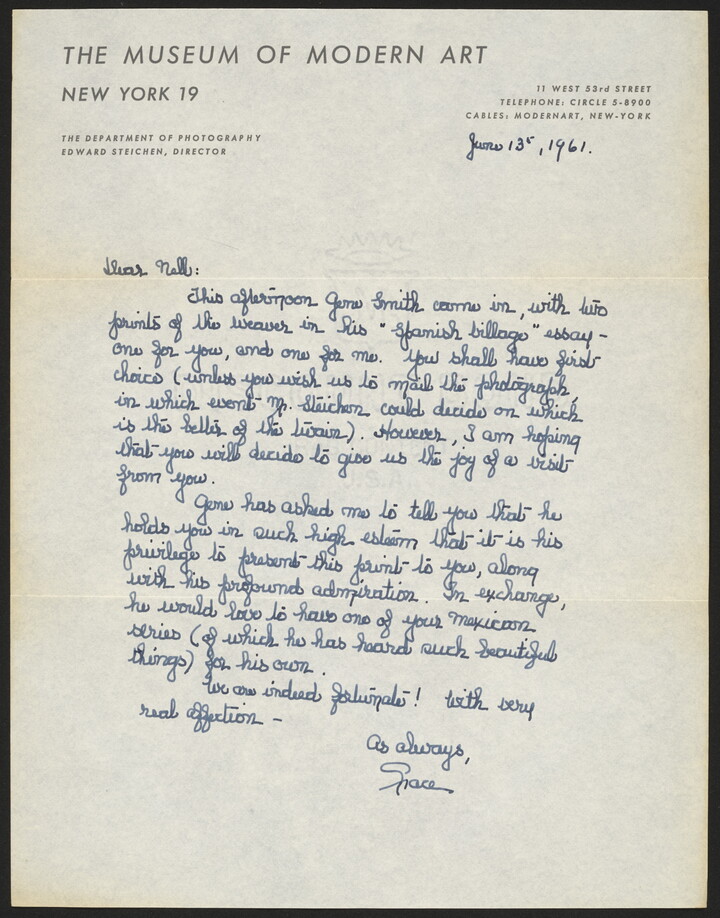 THE MUSEUM OF MODERN ART
NEW YORK 19
11 WEST 53rd STREET
TELEPHONE: CIRCLE 5-8900
CABLES: MODERNART, NEW-YORK
THE DEPARTMENT OF PHOTOGRAPHY
EDWARD STEICHEN, DIRECTOR
June 13, 1961.
Dear Nell:
This afternoon Gene Smith came in, with two
prints of the weaver in his "Spanish Village" essay –
one for you, and one for me. You shall have first
choice (unless you wish us to mail the photograph,
in which event Mr. Steichen could decide on which
is the better of the twain). However, I am hoping
that you will decide to give us the joy of a visit
from you.
Gene has asked me to tell you that he
holds you in such high esteem that it is his
privilege to present this print to you, along
with his profound admiration. In exchange,
he would love to have one of your Mexican
series (of which he has heard such beautiful
things) for his own.
We are indeed fortunate! With very
real affection –
As always,
Grace